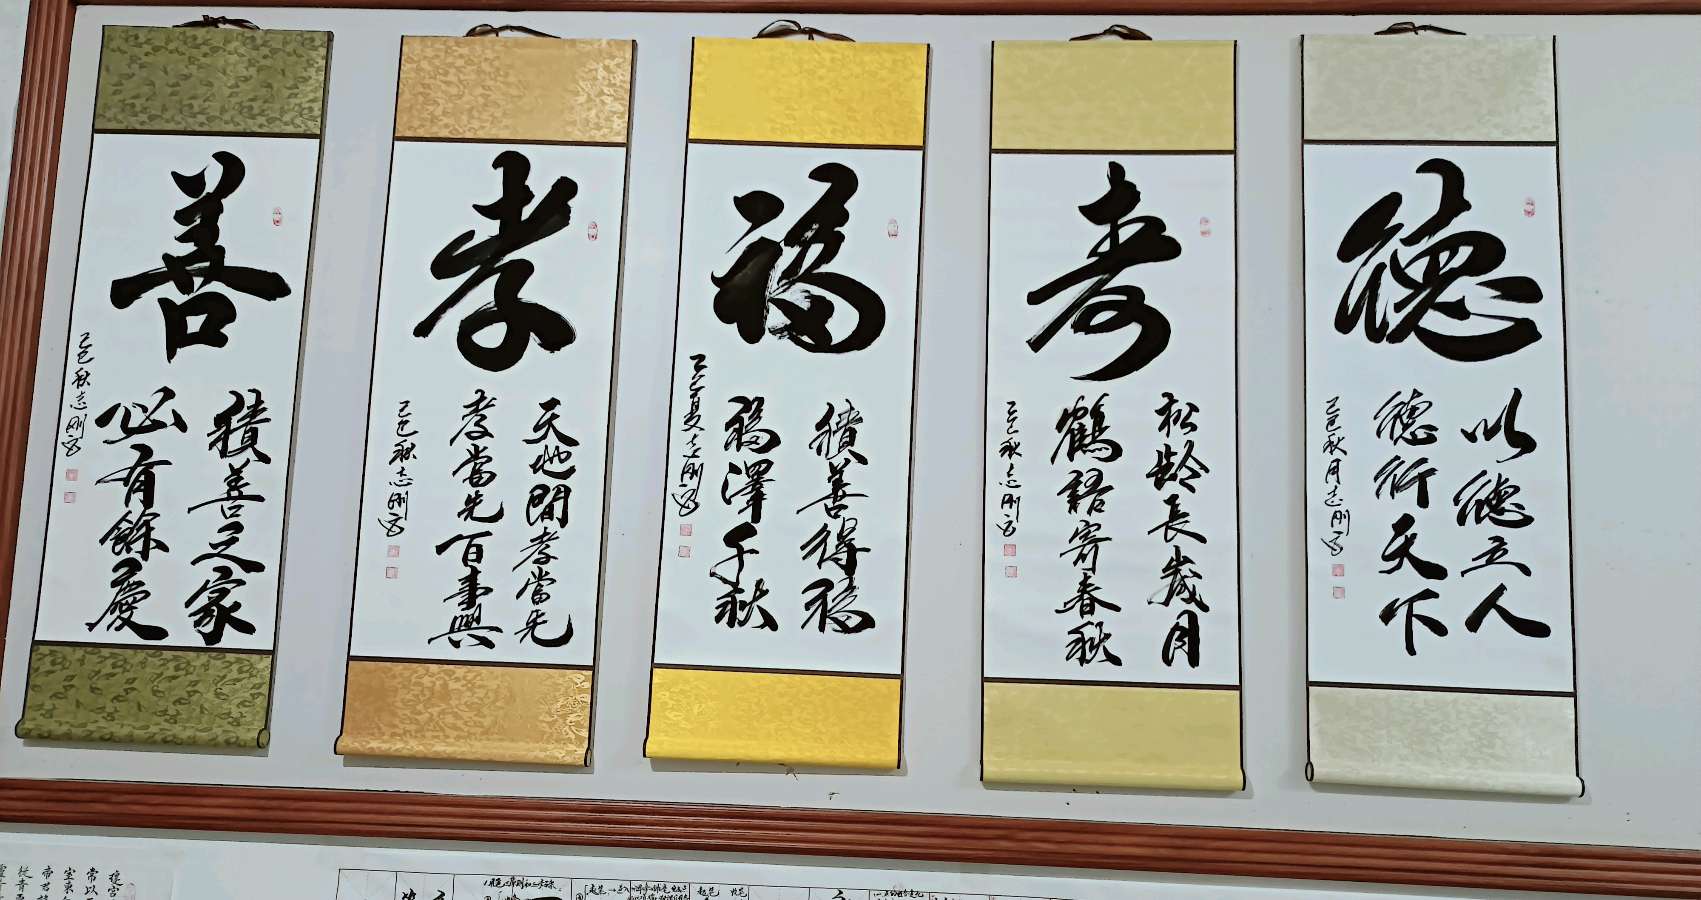 善
積善之家
必有餘慶
乙巳秋志刚写
孝
天地間孝當先
孝當先百事興
乙巳秋志刚写
福
積善得福
福澤千秋
乙巳夏志刚写
寿
松龄長歲月
鶴語寄春秋
乙巳秋志刚写
德
以德立人
德行天下
乙巳秋月志刚写